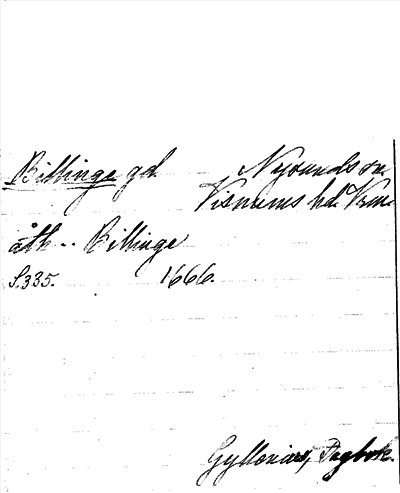 Billinge gd. Nysunds sn.
Visnums hd Vrm.
åth .. Billinge
S.335. 1666.
Gyllenius, Dagbok.